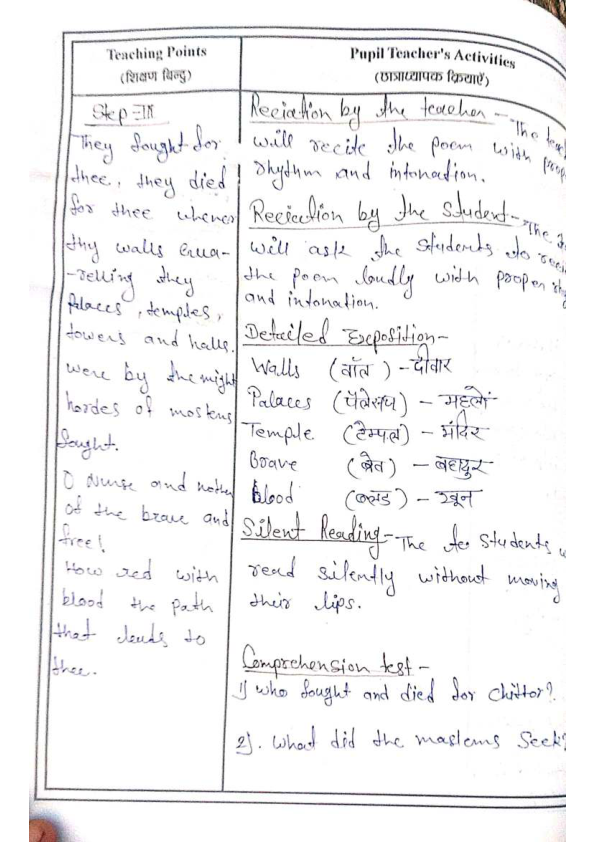 Teaching Points
(शिक्षण बिन्दु)
Step -III
They fought for
thee, they died
for thee whener
thy walls enua-
-relling they
Palaces, temples,
towers and halls.
were by the might
hordes of moslems
fought.
O Nurse and mother
of the brave and
free!
How red with
blood the path
that leads to
thee.
Pupil Teacher's Activities
(छात्राध्यापक क्रियाएँ)
Reciation by the teacher - The
will recite the poem with
rhythm and intonation.
Reciection by the Student - The
will ask the students to
the poem loudly with proper
and intonation.
Detailed Exposition -
Walls (वॉल) - दीवार
Palaces (पॅलेसेष) - महलों
Temple (टेम्पल) - मंदिर
Brave (ब्रेव) - बहादुर
blood (ब्लड) - खून
Silent Reading - The students
read silently without moving
their lips.
Comprehension test -
1) who fought and died for chittor?
2). What did the maslems Seek?